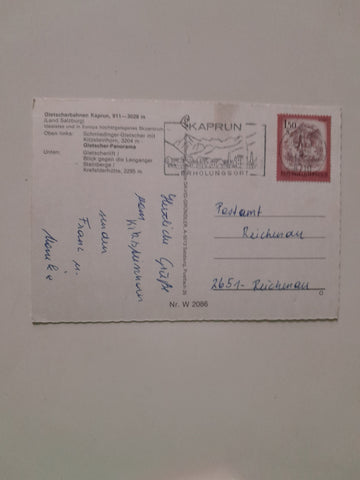 Gletscherbahnen Kaprun, 911—3029 m
(Land Salzburg)
Oben links: Schmiedinger-Gletscher mit
Kitzsteinhorn, 3204 m
Gletscher-Panorama
Unten: Gletscherlift /
Blick gegen die Leoganger
Steinberge /
Krefelderhütte, 2295 m
KAPRUN
ERHOLUNGSORT
1.50
Postamt
Reichenau
2651 - Reichenau
Herzliche Grüße
vom Kitzsteinhorn
senden
Franz u.
Monika
Nr. W 2086